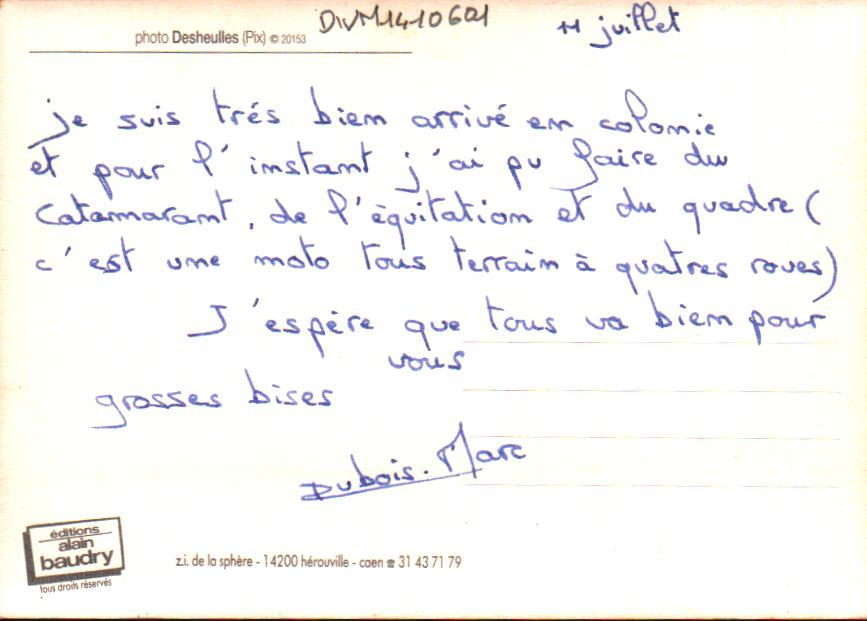 DIVM1410601
11 juillet
photo Desheulles (Pix) © 20153
je suis trés bien arrivé en colonie
et pour l'instant j'ai pu faire du
Catamarant, de l'équitation et du quadre (
c'est une moto tous terrain à quatres roues)
J'espère que tous va bien pour
vous
grosses bises
Dubois. Marc
éditions
alain
baudry
tous droits réservés
z.i. de la sphère - 14200 hérouville - caen ☎ 31 43 71 79